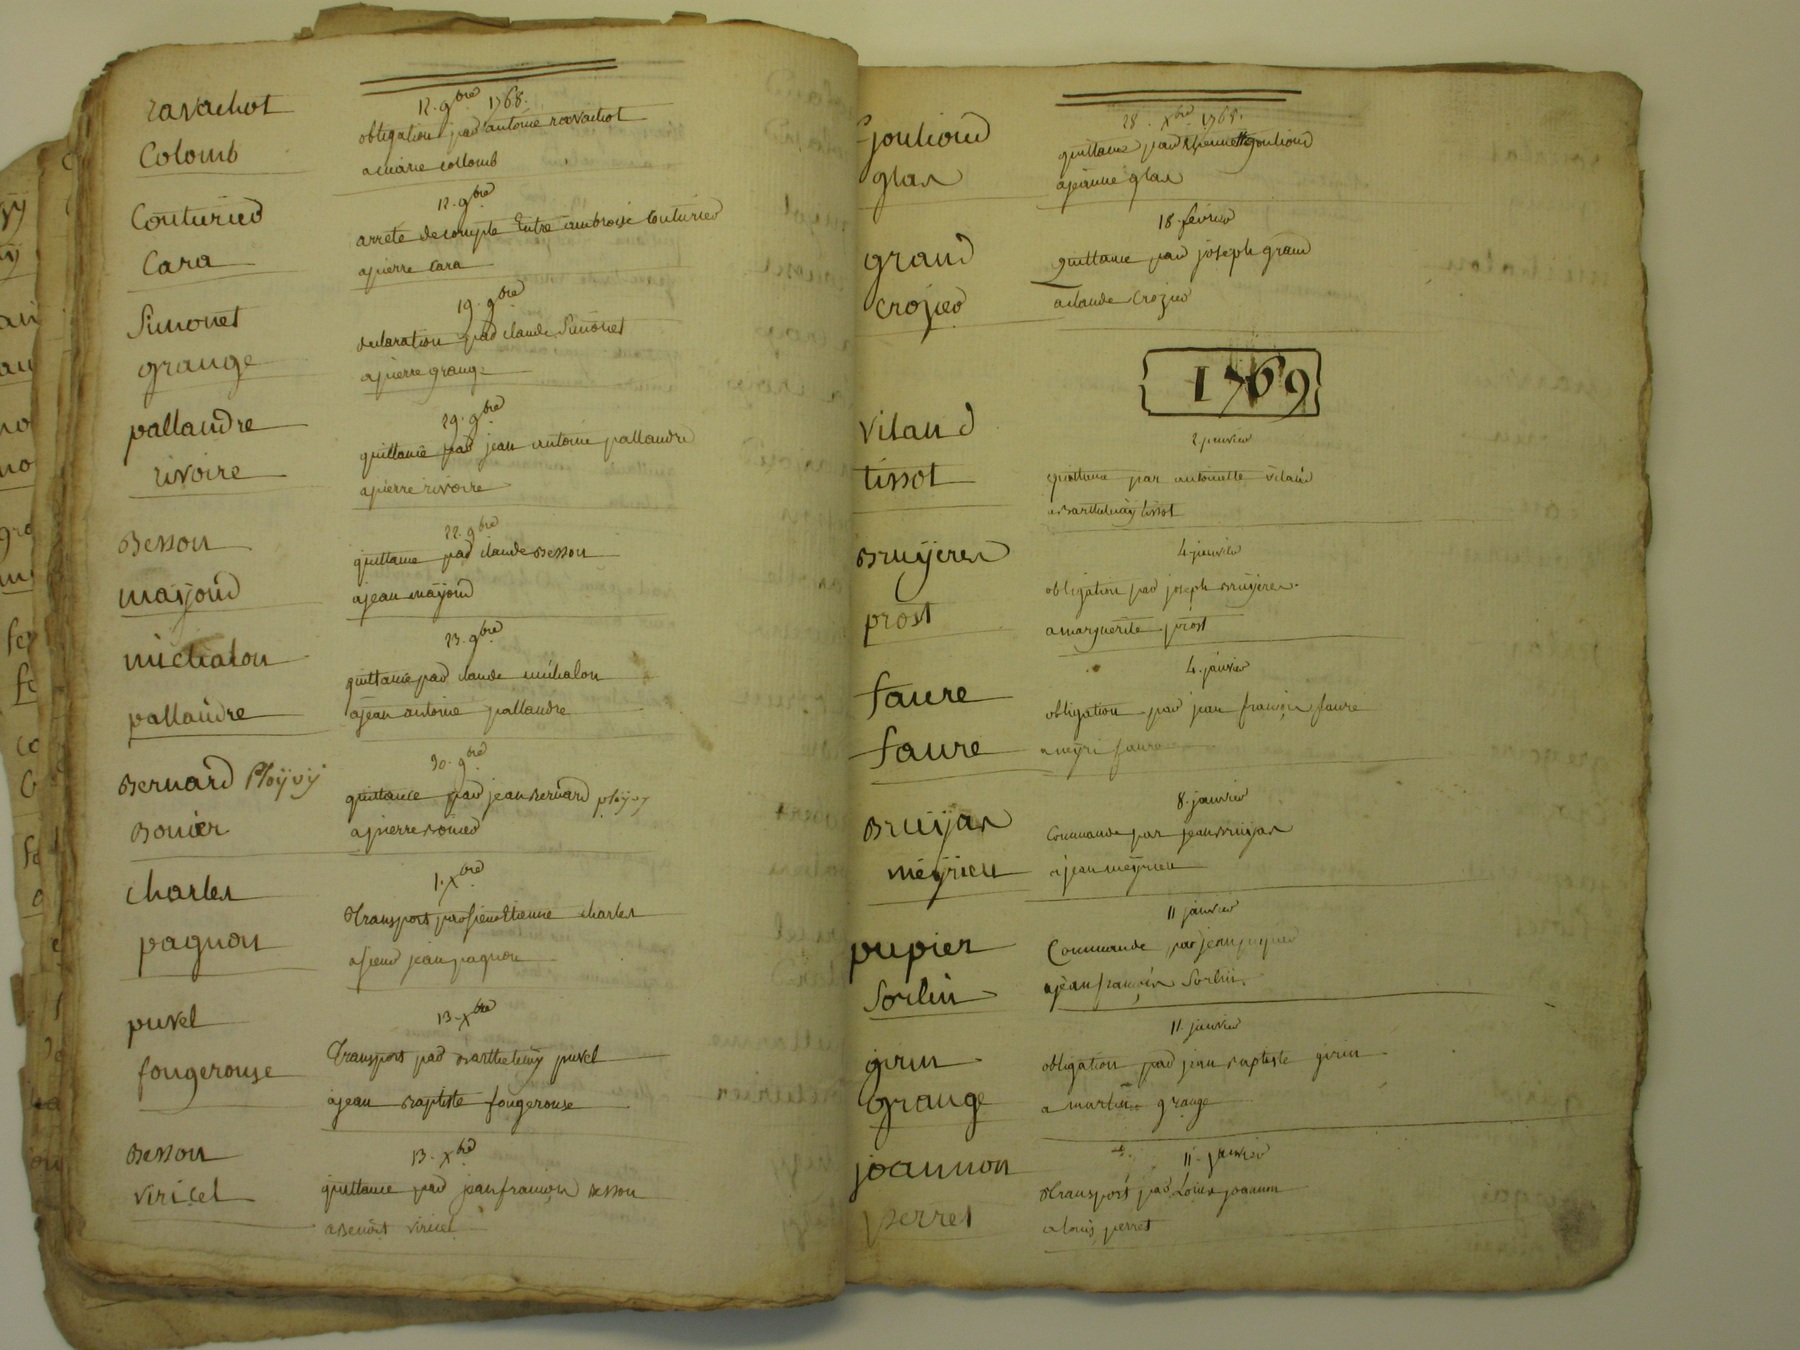 12. 9bre 1768.
ravachot
obligation par antoine ravachot
Colomb
a marie collomb
12. 9bre
Couturier
arrêté de compte Entre ambroise Couturier
Cara
a pierre Cara
19. 9bre
Simonet
declaration par claude Simonet
grange
a pierre grange
29. 9bre
pallandre
quittance par jean antoine pallandre
rivoire
a pierre rivoire
22. 9bre
Besson
quittance par claude Besson
mayoud
a jean mayoud
23. 9bre
michalon
quittance par claude michalon
pallandre
a jean antoine pallandre
30. 9bre
Bernard Ployvy
quittance par jean Bernard ployvy
Bonier
a pierre Bonier
1. xbre
charles
transport par sieur etienne charles
pagnon
a sieur jean pagnon
13. xbre
puvel
transport par Barthelemy puvel
fougerouse
a jean Baptiste fougerouse
13. xbre
Besson
quittance par jean françois Besson
viricel
a Benoit viricel
28. xbre 1768.
Goutioud
quittance par goutioud
glas
a jeanne glas
18. fevrier
grand
quittance par joseph grand
crozier
a claude Crozier
1769
2 janvier
vilaud
quittance par antoinette vilaud
tissot
a Barthelemy tissot
4 janvier
Bruyeres
obligation par joseph Bruyeres.
prost
a marguerite prost
4. janvier
faure
obligation par jean françois faure
faure
a neyri faure
8. janvier
Bruyas
Commande par jean Bruyas
meyrieu
a jean meyrieu
11 janvier
pupier
Commande par jean pupier
Sorlin
a jean françois Sorlin.
11. janvier
girin
obligation par jean Baptiste girin
Grange
a martin grange
11. janvier
joannon
transport par Louis joannon
perret
a louis perret